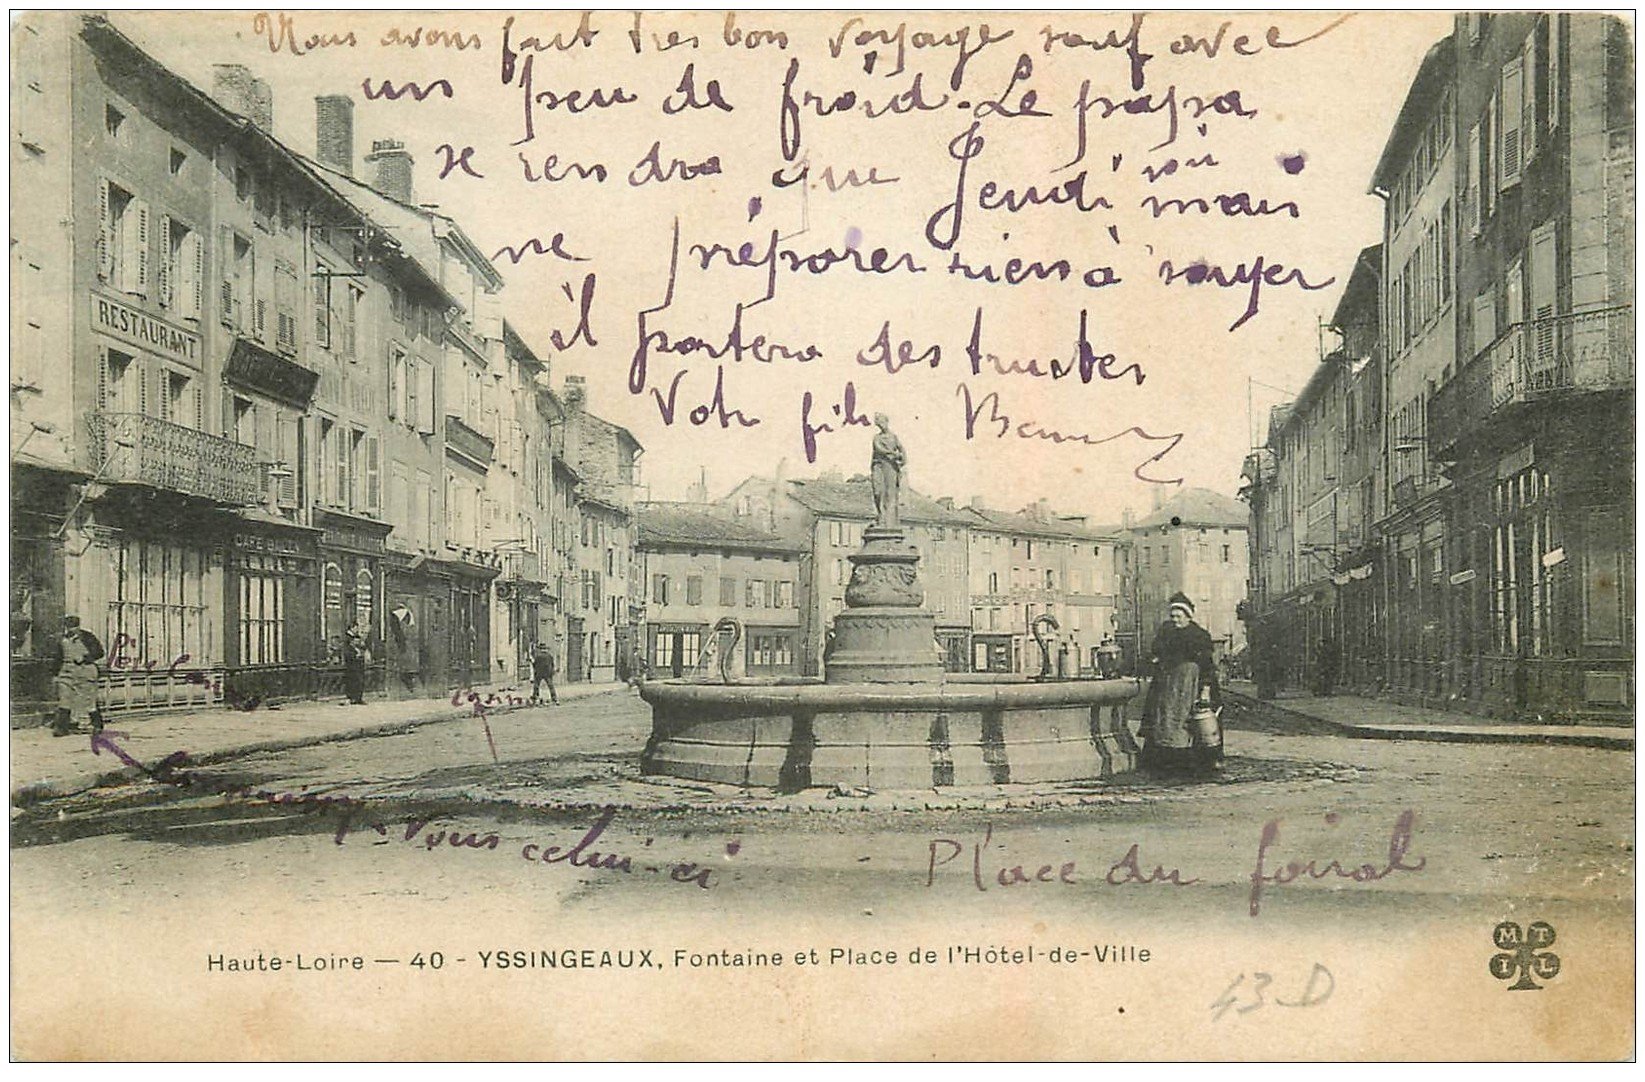 Nous avons fait tres bon voyage sauf avec
un peu de froid. Le papa
se rendra que Jeudi soi
mais
ne préparer rien à souper
il portera des truites
Votr fils
RESTAURANT
CAFE
Connaissez-vous celui-ci
Place du foiral
Haute-Loire — 40 - YSSINGEAUX, Fontaine et Place de l'Hôtel-de-Ville
MTIL
43-D